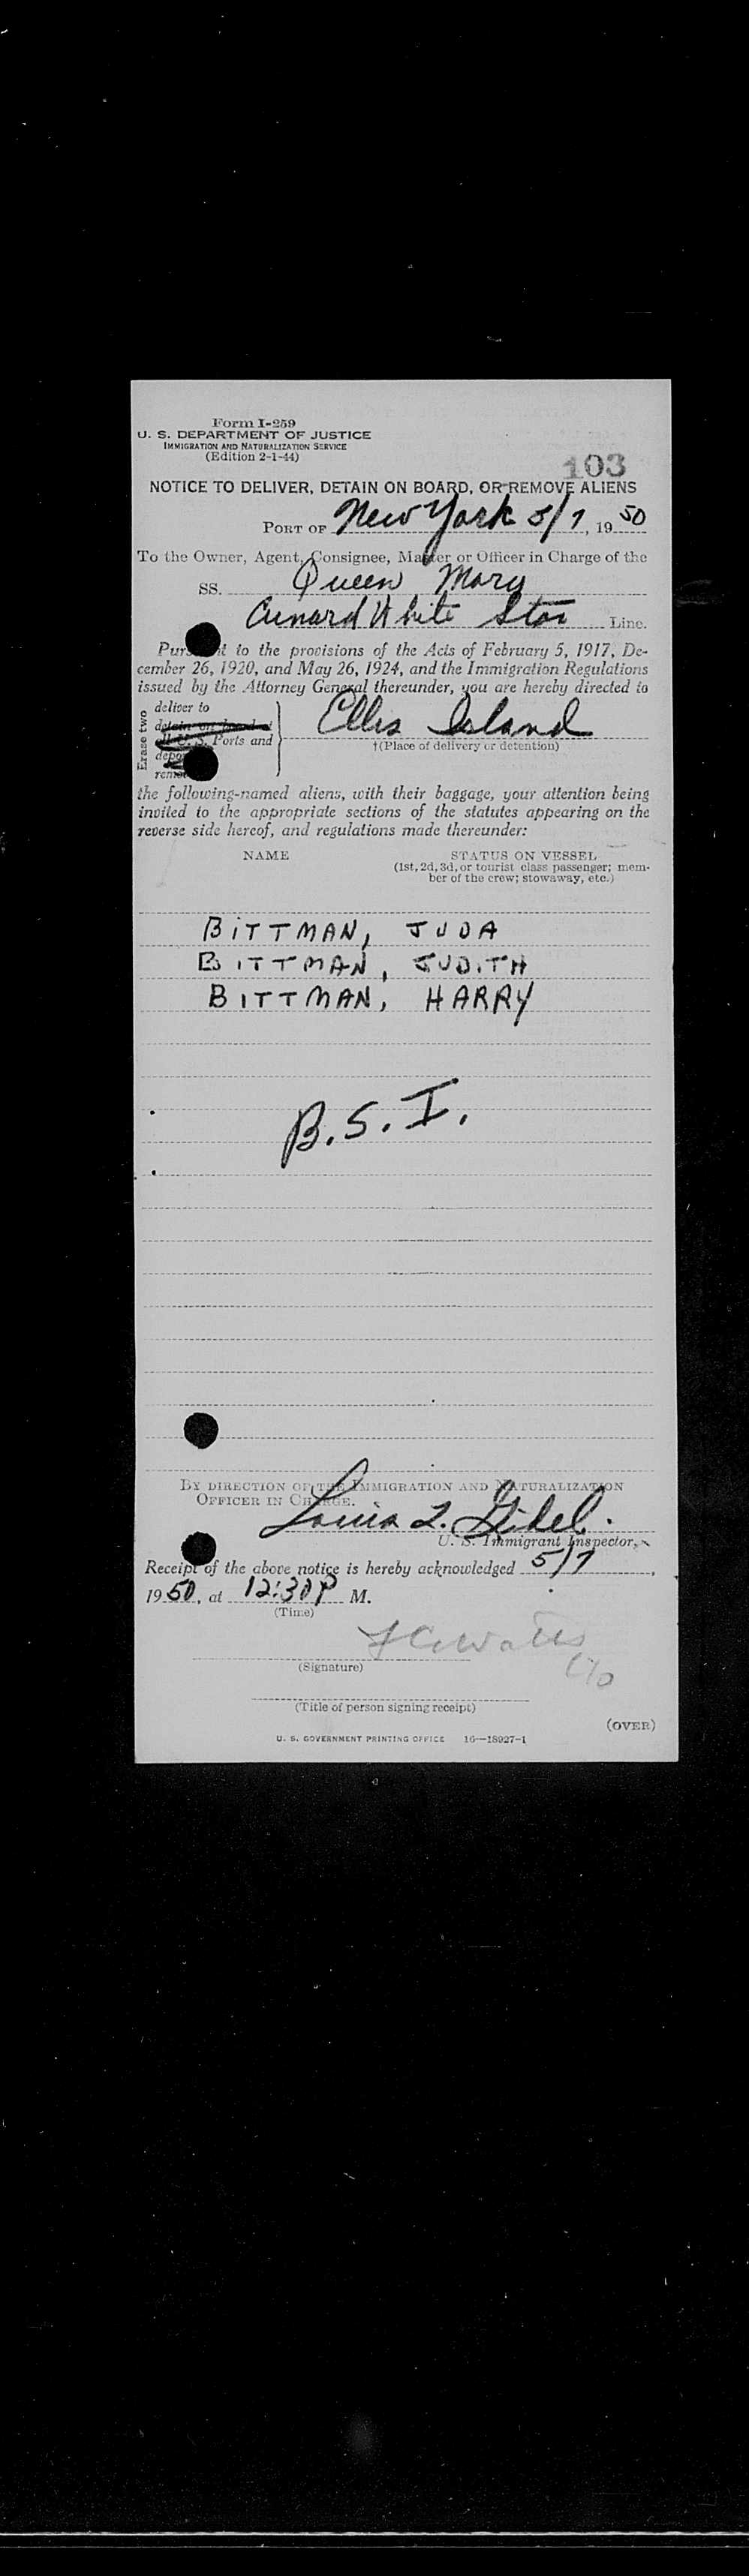 Form I-259
U. S. DEPARTMENT OF JUSTICE
IMMIGRATION AND NATURALIZATION SERVICE
(Edition 2-1-44)
103
NOTICE TO DELIVER, DETAIN ON BOARD, OR REMOVE ALIENS
PORT OF New York 5/7, 19 50
To the Owner, Agent, Consignee, Master or Officer in Charge of the
SS. Queen Mary
Cunard White Star Line.
Pursuant to the provisions of the Acts of February 5, 1917, De-
cember 26, 1920, and May 26, 1924, and the Immigration Regulations
issued by the Attorney General thereunder, you are hereby directed to
Erase two
deliver to
detain on board at
all U. S. Ports and
Ellis Island
†(Place of delivery or detention)
the following-named aliens, with their baggage, your attention being
invited to the appropriate sections of the statutes appearing on the
reverse side hereof, and regulations made thereunder:
NAME STATUS ON VESSEL
(1st, 2d, 3d, or tourist class passenger; mem-
ber of the crew; stowaway, etc.)
BITTMAN, JUDA
BITTMAN, JUDITH
BITTMAN, HARRY
B.S.I.
BY DIRECTION OF THE IMMIGRATION AND NATURALIZATION
OFFICER IN CHARGE.
Louis
U. S. Immigrant Inspector.
Receipt of the above notice is hereby acknowledged 5/7,
19 50, at 12:30 P M.
(Time)
(Signature)
(Title of person signing receipt)
(OVER)
U. S. GOVERNMENT PRINTING OFFICE 16—18927-1